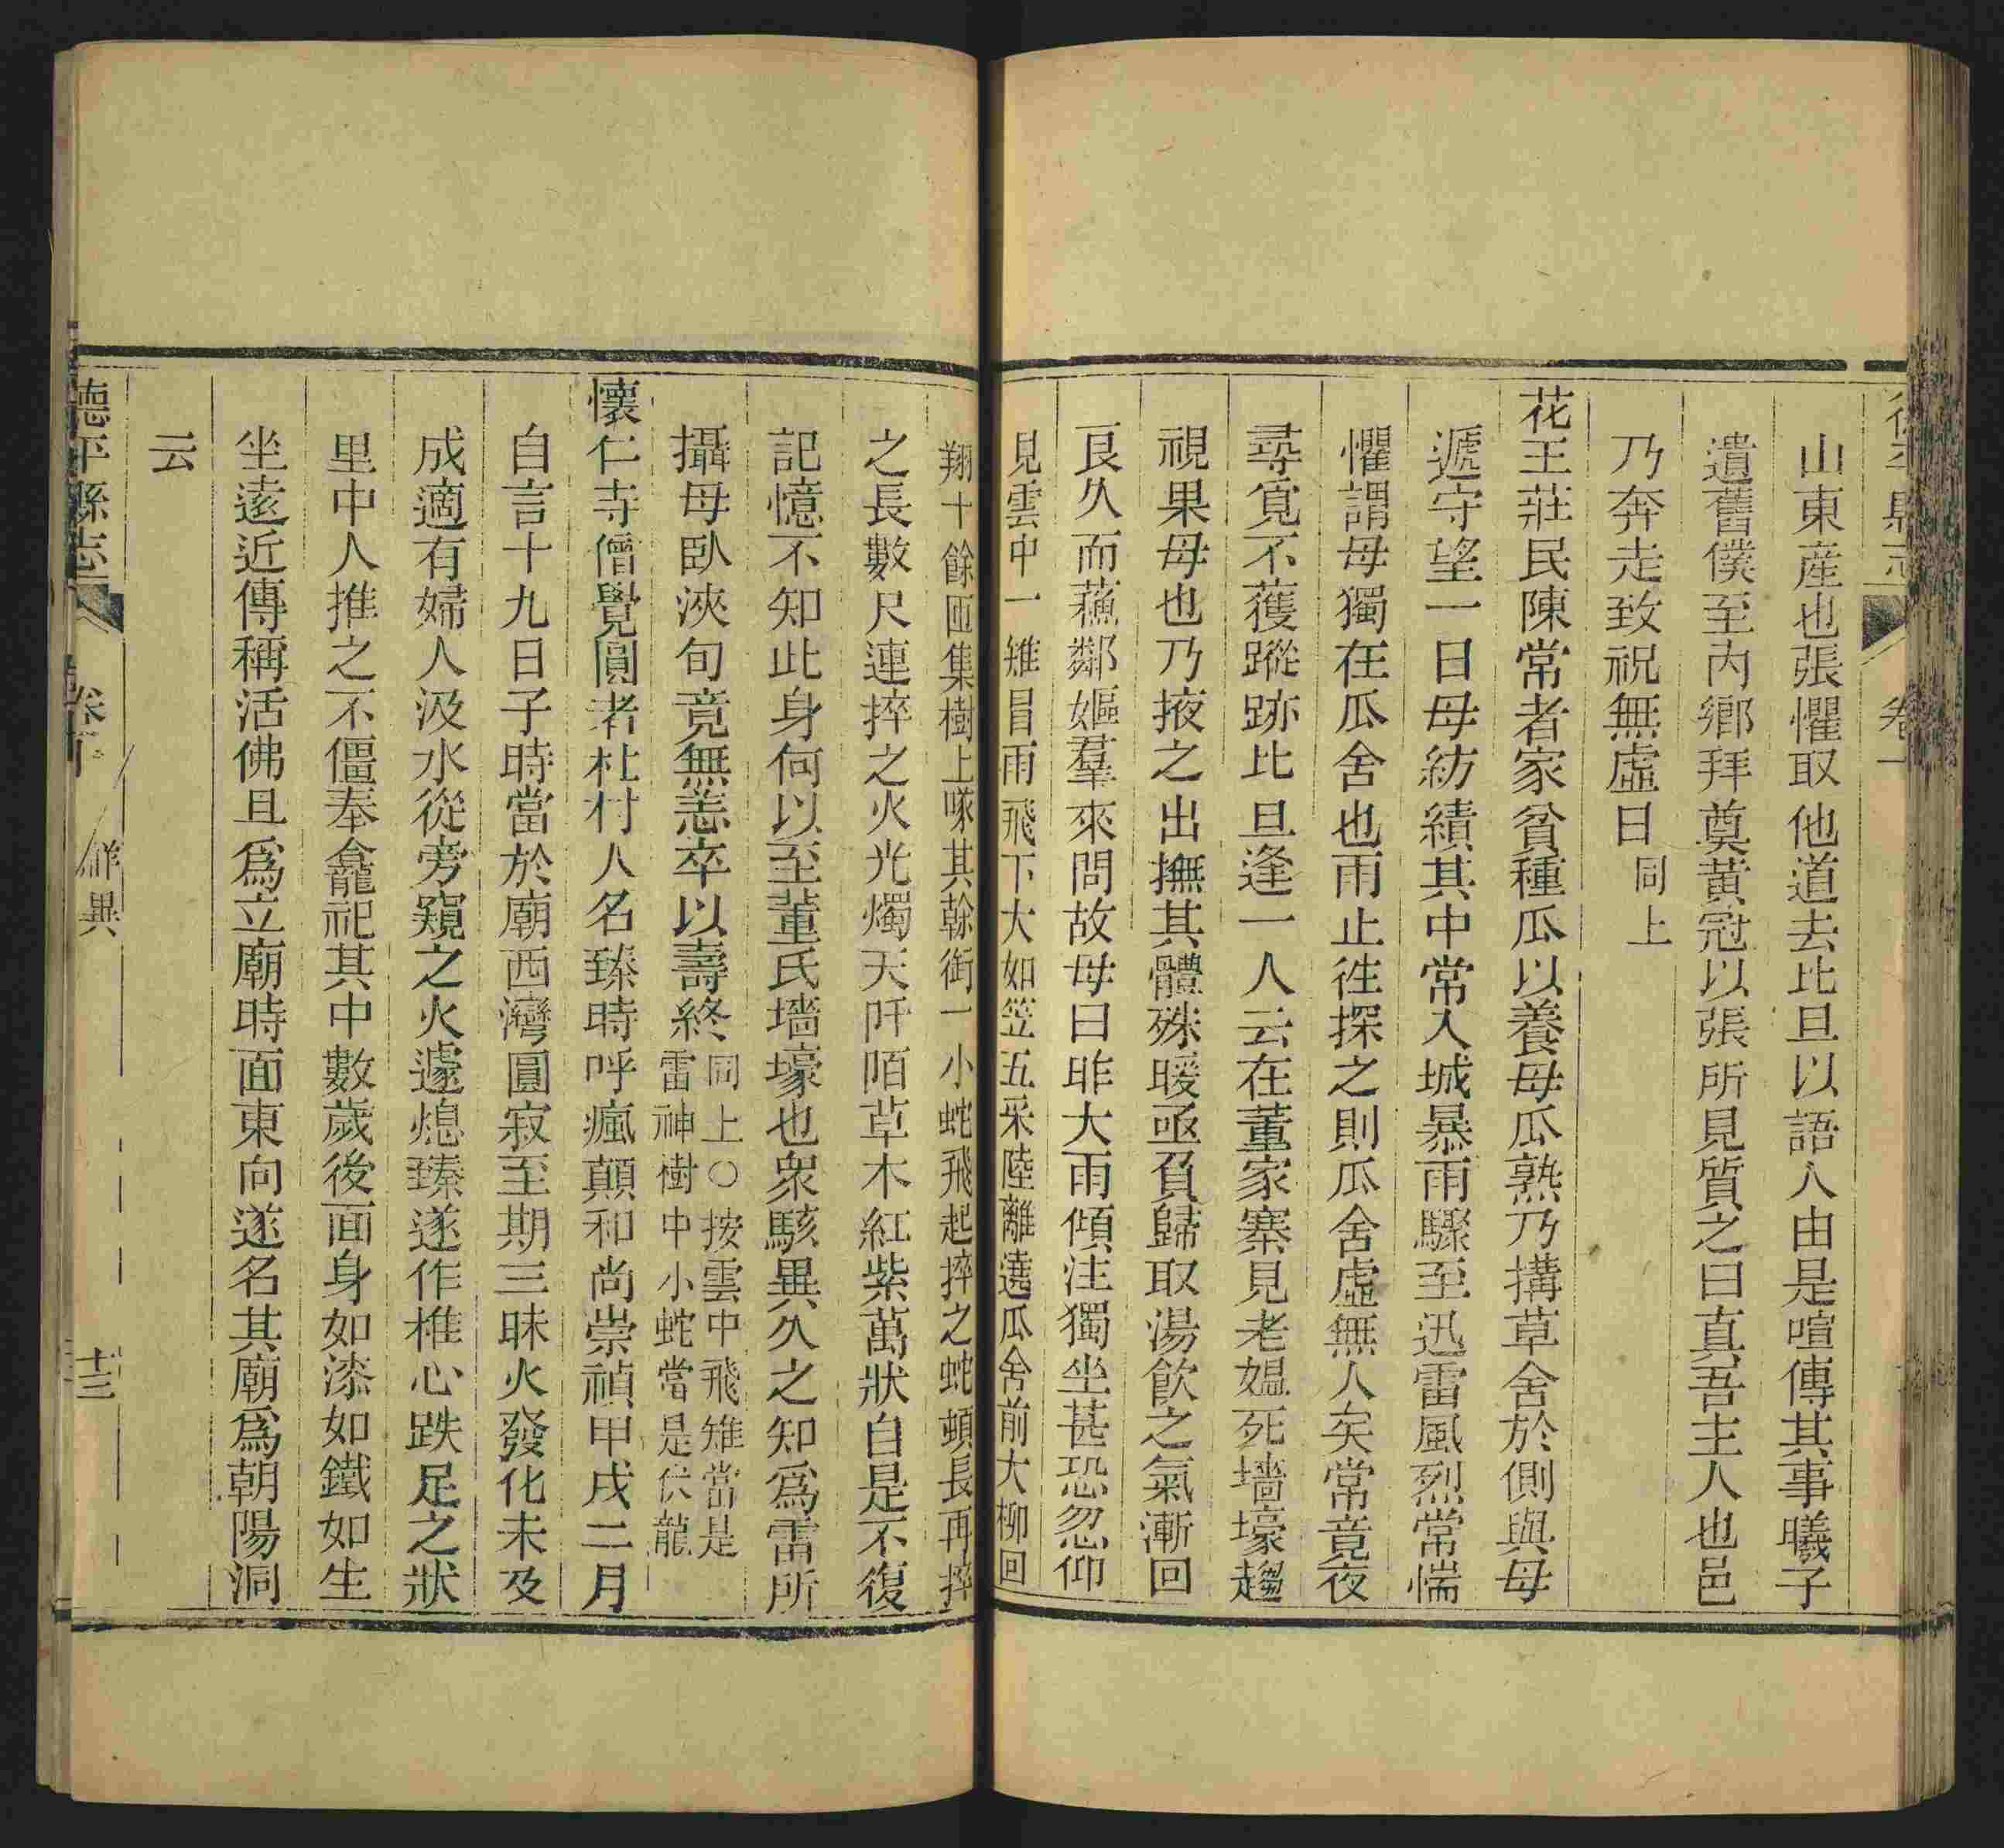 德平縣志 卷十
山東産也張懼取他道去比旦以語人由是喧傳其事曦子
遺舊僕至內鄉拜奠黃冠以張所見質之曰真吾主人也邑
乃奔走致祝無虛日同上
花王莊民陳常者家貧種瓜以養母瓜熟乃搆草舍於側與母
遞守望一日母紡績其中常入城暴雨驟至迅雷風烈常惴
懼謂母獨在瓜舍也雨止徃探之則瓜舍虛無人矣常竟夜
尋覓不獲蹤跡比旦逢一人云在董家寨見老媼死墻壕趨
視果母也乃掖之出撫其體殊暖亟負歸取湯飲之氣漸回
良久而蘓鄰嫗羣來問故母曰昨大雨傾注獨坐甚恐忽仰
見雲中一雉冒雨飛下大如笠五采陸離遶瓜舍前大柳回
翔十餘匝集樹上啄其榦銜一小蛇飛起捽之蛇頓長再捽
之長數尺連捽之火光燭天阡陌草木紅紫萬狀自是不復
記憶不知此身何以至董氏墻壕也衆駭異久之知爲雷所
攝母臥浹旬竟無恙卒以壽終同上○按雲中飛雉當是
雷神樹中小蛇當是伏龍
懷仁寺僧覺圓者杜村人名臻時呼瘋顛和尚崇禎甲戌二月
自言十九日子時當於廟西灣圓寂至期三昧火發化未及
成適有婦人汲水從旁窺之火遽熄臻遂作椎心跌足之狀
里中人推之不僵奉龕祀其中數歲後面身如漆如鐵如生
坐逺近傳稱活佛且爲立廟時面東向遂名其廟爲朝陽洞
云
德平縣志 卷十 祥異 十三